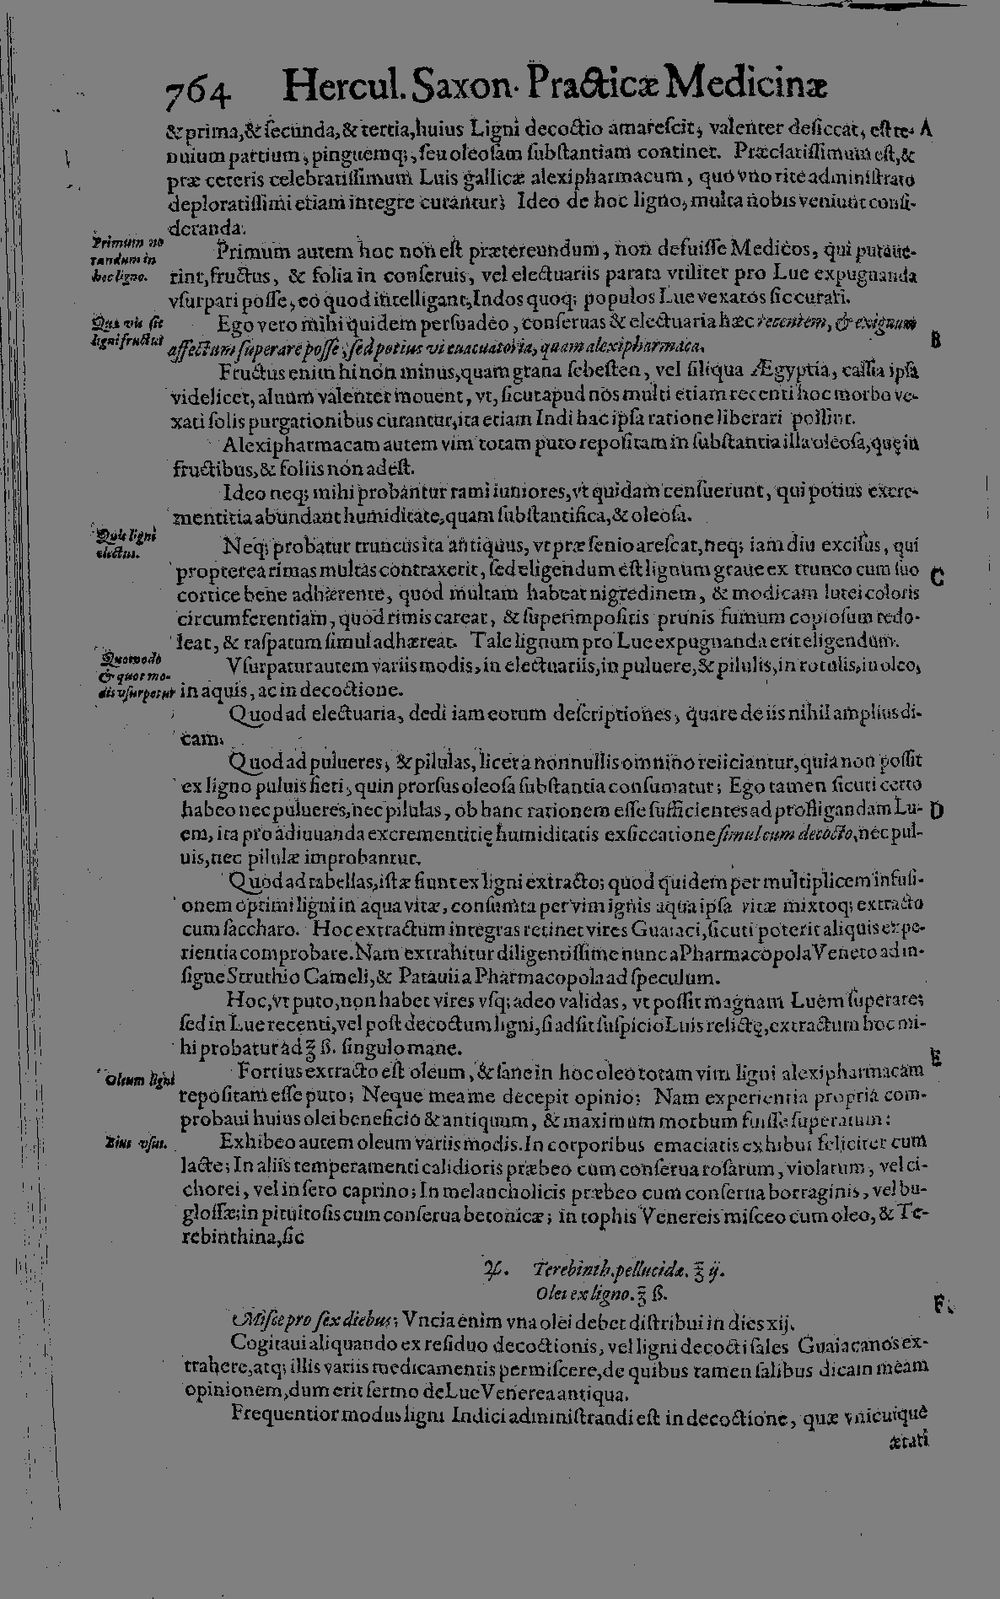 764 Hercul. Saxon. Practicæ Medicinæ
& prima, & ſecunda, & tertia, huius Ligni decoctio amareſcit, valenter deſiccat, eſt te- A
nuium partium, pinguemq;, ſeu oleoſam ſubſtantiam continet. Præclatiſſimum eſt, &
præ ceteris celebratiſſimum Luis gallicæ alexipharmacum, quo vno rite adminiſtrato
deploratiſſimi etiam integre curantur; Ideo de hoc ligno, multa nobis veniunt conſi-
deranda.
Primum no
tandum in
hoc ligno.
Primum autem hoc non eſt prætereundum, non defuiſſe Medicos, qui putaue-
rint, fructus, & folia in conſeruis, vel electuariis parata vtiliter pro Lue expugnanda
vſurpari poſſe, eo quod intelligant, Indos quoq; populos Lue vexatos ſic curari.
Quæ vis ſit
ligni fructus
Ego vero mihi quidem perſuadeo, conſeruas & electuaria hæc recentem, & exiguum
affectum ſuperare poſſe, ſed potius vi euacuatoria, quam alexipharmaca. B
Fructus enim hi non minus, quam grana ſebeſten, vel ſiliqua Ægyptia, caſſia ipſa
videlicet, aluum valenter mouent, vt, ſicut apud nos multi etiam recenti hoc morbo ve-
xati ſolis purgationibus curantur, ita etiam Indi hac ipſa ratione liberari poſſint.
Alexipharmacam autem vim totam puto repoſitam in ſubſtantia illa oleoſa, quę in
fructibus, & foliis non adeſt.
Ideo neq; mihi probantur rami iuniores, vt quidam cenſuerunt, qui potius excre-
mentitia abundant humiditate, quam ſubſtantifica, & oleoſa.
Quis ligni
electus.
Neq; probatur truncus ita antiquus, vt præ ſenio areſcat, neq; iam diu exciſus, qui
propterea rimas multas contraxerit, ſed eligendum eſt lignum graue ex trunco cum ſuo C
cortice bene adhærente, quod multam habeat nigredinem, & modicam lutei coloris
circumferentiam, quod rimis careat, & ſuperimpoſitis prunis fumum copioſum redo-
leat, & raſpatum ſimul adhæreat. Tale lignum pro Lue expugnanda erit eligendum.
Quomodo
& quot mo-
dis vſurpetur
Vſurpatur autem variis modis, in electuariis, in puluere, & pilulis, in rotulis, in oleo,
in aquis, ac in decoctione.
Quod ad electuaria, dedi iam eorum deſcriptiones, quare de iis nihil amplius di-
cam.
Quod ad pulueres, & pilulas, licet a nonnullis omnino reiiciantur, quia non poſſit
ex ligno puluis fieri, quin prorſus oleoſa ſubſtantia conſumatur; Ego tamen ſicuti certo
habeo nec pulueres, nec pilulas, ob hanc rationem eſſe ſufficientes ad profligandam Lu- D
em, ita pro adiuuanda excrementitię humiditatis exſiccatione ſimul cum decocto, nec pul-
uis, nec pilulæ improbantur.
Quod ad tabellas, iſtæ fiunt ex ligni extracto; quod quidem per multiplicem infuſi-
onem optimi ligni in aqua vitæ, conſumta per vim ignis aqua ipſa vitæ mixtoq; extracto
cum ſaccharo. Hoc extractum integras retinet vires Guaiaci, ſicuti poterit aliquis expe-
rientia comprobare. Nam extrahitur diligentiſſime nunc a Pharmacopola Veneto ad in-
ſigne Struthio Cameli, & Patauii a Pharmacopola ad ſpeculum.
Hoc, vt puto, non habet vires vſq; adeo validas, vt poſſit magnam Luem ſuperare;
ſed in Lue recenti, vel poſt decoctum ligni, ſi adſit ſuſpicio Luis relictę, extractum hoc mi-
hi probatur ad ℥ ß. ſingulo mane. E
Oleum ligni
Fortius extracto eſt oleum, & ſane in hoc oleo totam vim ligni alexipharmacam
repoſitam eſſe puto; Neque mea me decepit opinio; Nam experientia propria com-
probaui huius olei beneficio & antiquum, & maximum morbum fuiſſe ſuperatum:
Eius vſus.
Exhibeo autem oleum variis modis. In corporibus emaciatis exhibui feliciter cum
lacte; In aliis temperamenti calidioris præbeo cum conſerua roſarum, violarum, vel ci-
chorei, vel in ſero caprino; In melancholicis præbeo cum conſerua borraginis, vel bu-
gloſſæ; in pituitoſis cum conſerua betonicæ; in tophis Venereis miſceo cum oleo, & Te-
rebinthina, ſic
♃. Terebinth. pellucidæ. ℥ ij.
Olei ex ligno. ℥ ß.
F.
Miſce pro ſex diebus; Vncia enim vna olei debet diſtribui in dies xij.
Cogitaui aliquando ex reſiduo decoctionis, vel ligni decocti ſales Guaiacanos ex-
trahere, atq; illis variis medicamentis permiſcere, de quibus tamen ſalibus dicam meam
opinionem, dum erit ſermo de Lue Venerea antiqua.
Frequentior modus ligni Indici adminiſtrandi eſt in decoctione, quæ vnicuique
ætati